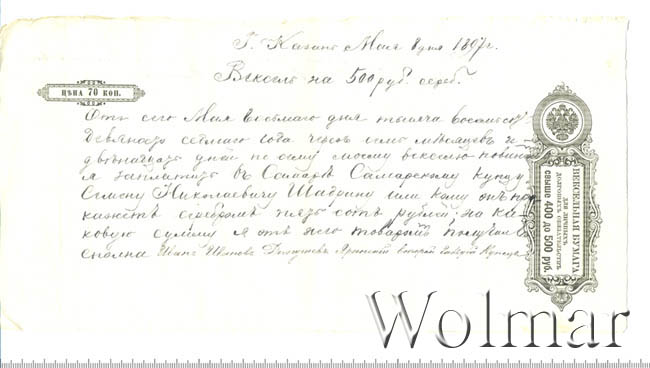 Г. Казань Мая 8 дня 1897 г.
Вексель на 500 руб. сереб.
ЦѢНА 70 КОП.
Отъ сего Мая Восьмаго дня тысяча восемьсотъ
девяносто седьмаго года чрезъ семь мѣсяцевъ и
двенадцать дней по сему моему векселю повиненъ
я заплатить въ Самарѣ Самарскому купцу
Семену Николаевичу Шабрину или кому онъ при
кажетъ серебромъ пять сотъ рублей; на ка
ковую сумму я отъ него товаромъ получилъ
сполна Иванъ Ивановъ второй гильдіи Купецъ
ВЕКСЕЛЬНАЯ БУМАГА
ДЛЯ ЛИЧНЫХЪ
ДОЛГОВЫХЪ ОБЯЗАТЕЛЬСТВЪ
свыше 400 до 500 руб.
Wolmar